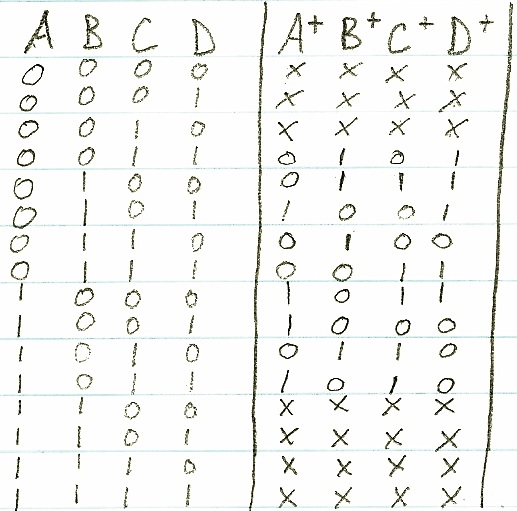 A B C D A+ B+ C+ D+
0 0 0 0 X X X X
0 0 0 1 X X X X
0 0 1 0 X X X X
0 0 1 1 0 1 0 1
0 1 0 0 0 1 1 1
0 1 0 1 1 0 0 1
0 1 1 0 0 1 0 0
0 1 1 1 0 0 1 1
1 0 0 0 1 0 1 1
1 0 0 1 1 0 0 0
1 0 1 0 0 1 1 0
1 0 1 1 1 0 1 0
1 1 0 0 X X X X
1 1 0 1 X X X X
1 1 1 0 X X X X
1 1 1 1 X X X X